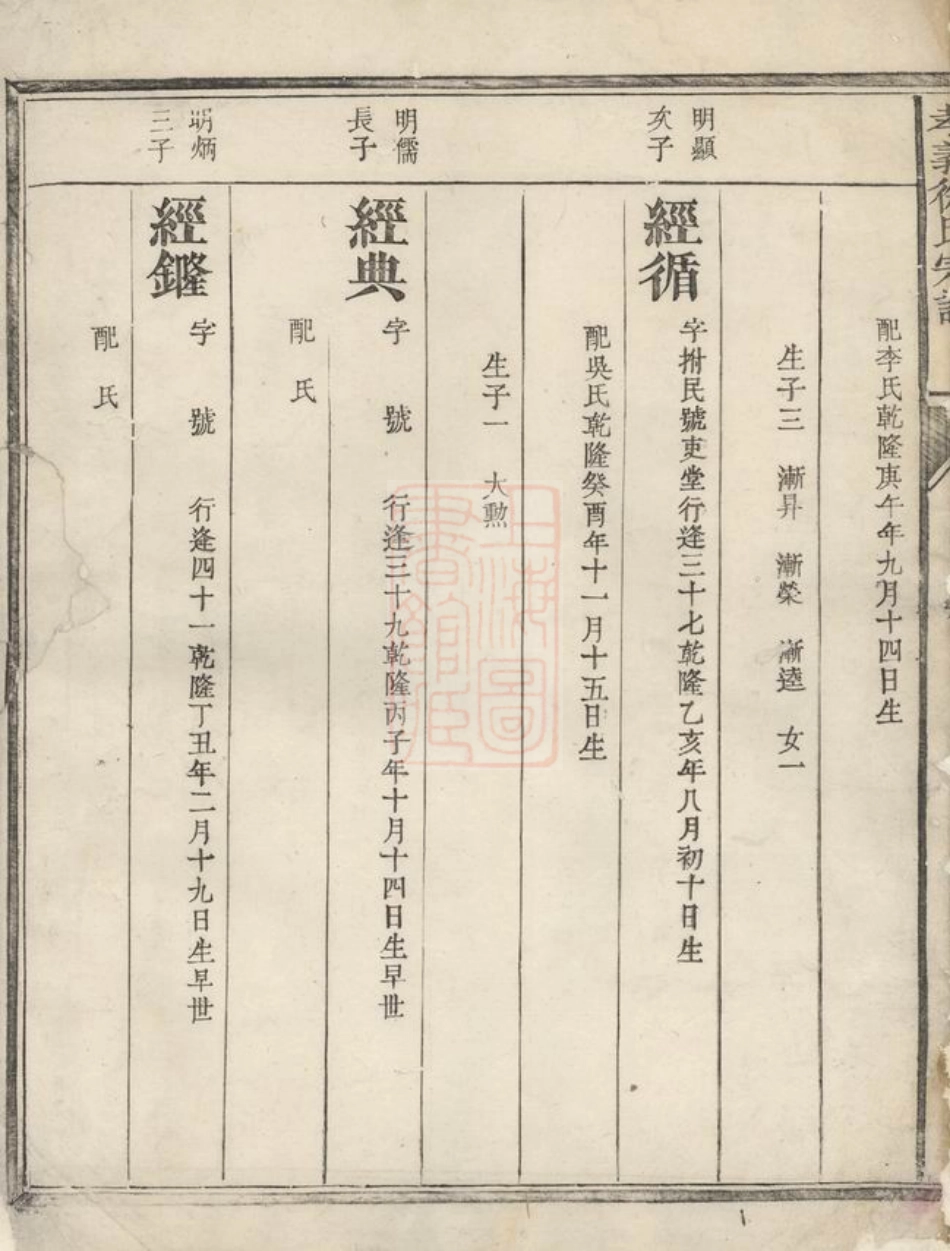 孝義徐氏宗譜
配李氏乾隆庚午年九月十四日生
生子三 漸昇 漸榮 漸逵 女一
明顯
次子
經循
字拊民號吏堂行逢三十七乾隆乙亥年八月初十日生
配吳氏乾隆癸酉年十一月十五日生
生子一 大勲
明儒
長子
經典
字 號 行逢三十九乾隆丙子年十月十四日生早世
配 氏
明炳
三子
經
字 號 行逢四十一乾隆丁丑年二月十九日生早世
配 氏
上海圖
書館藏